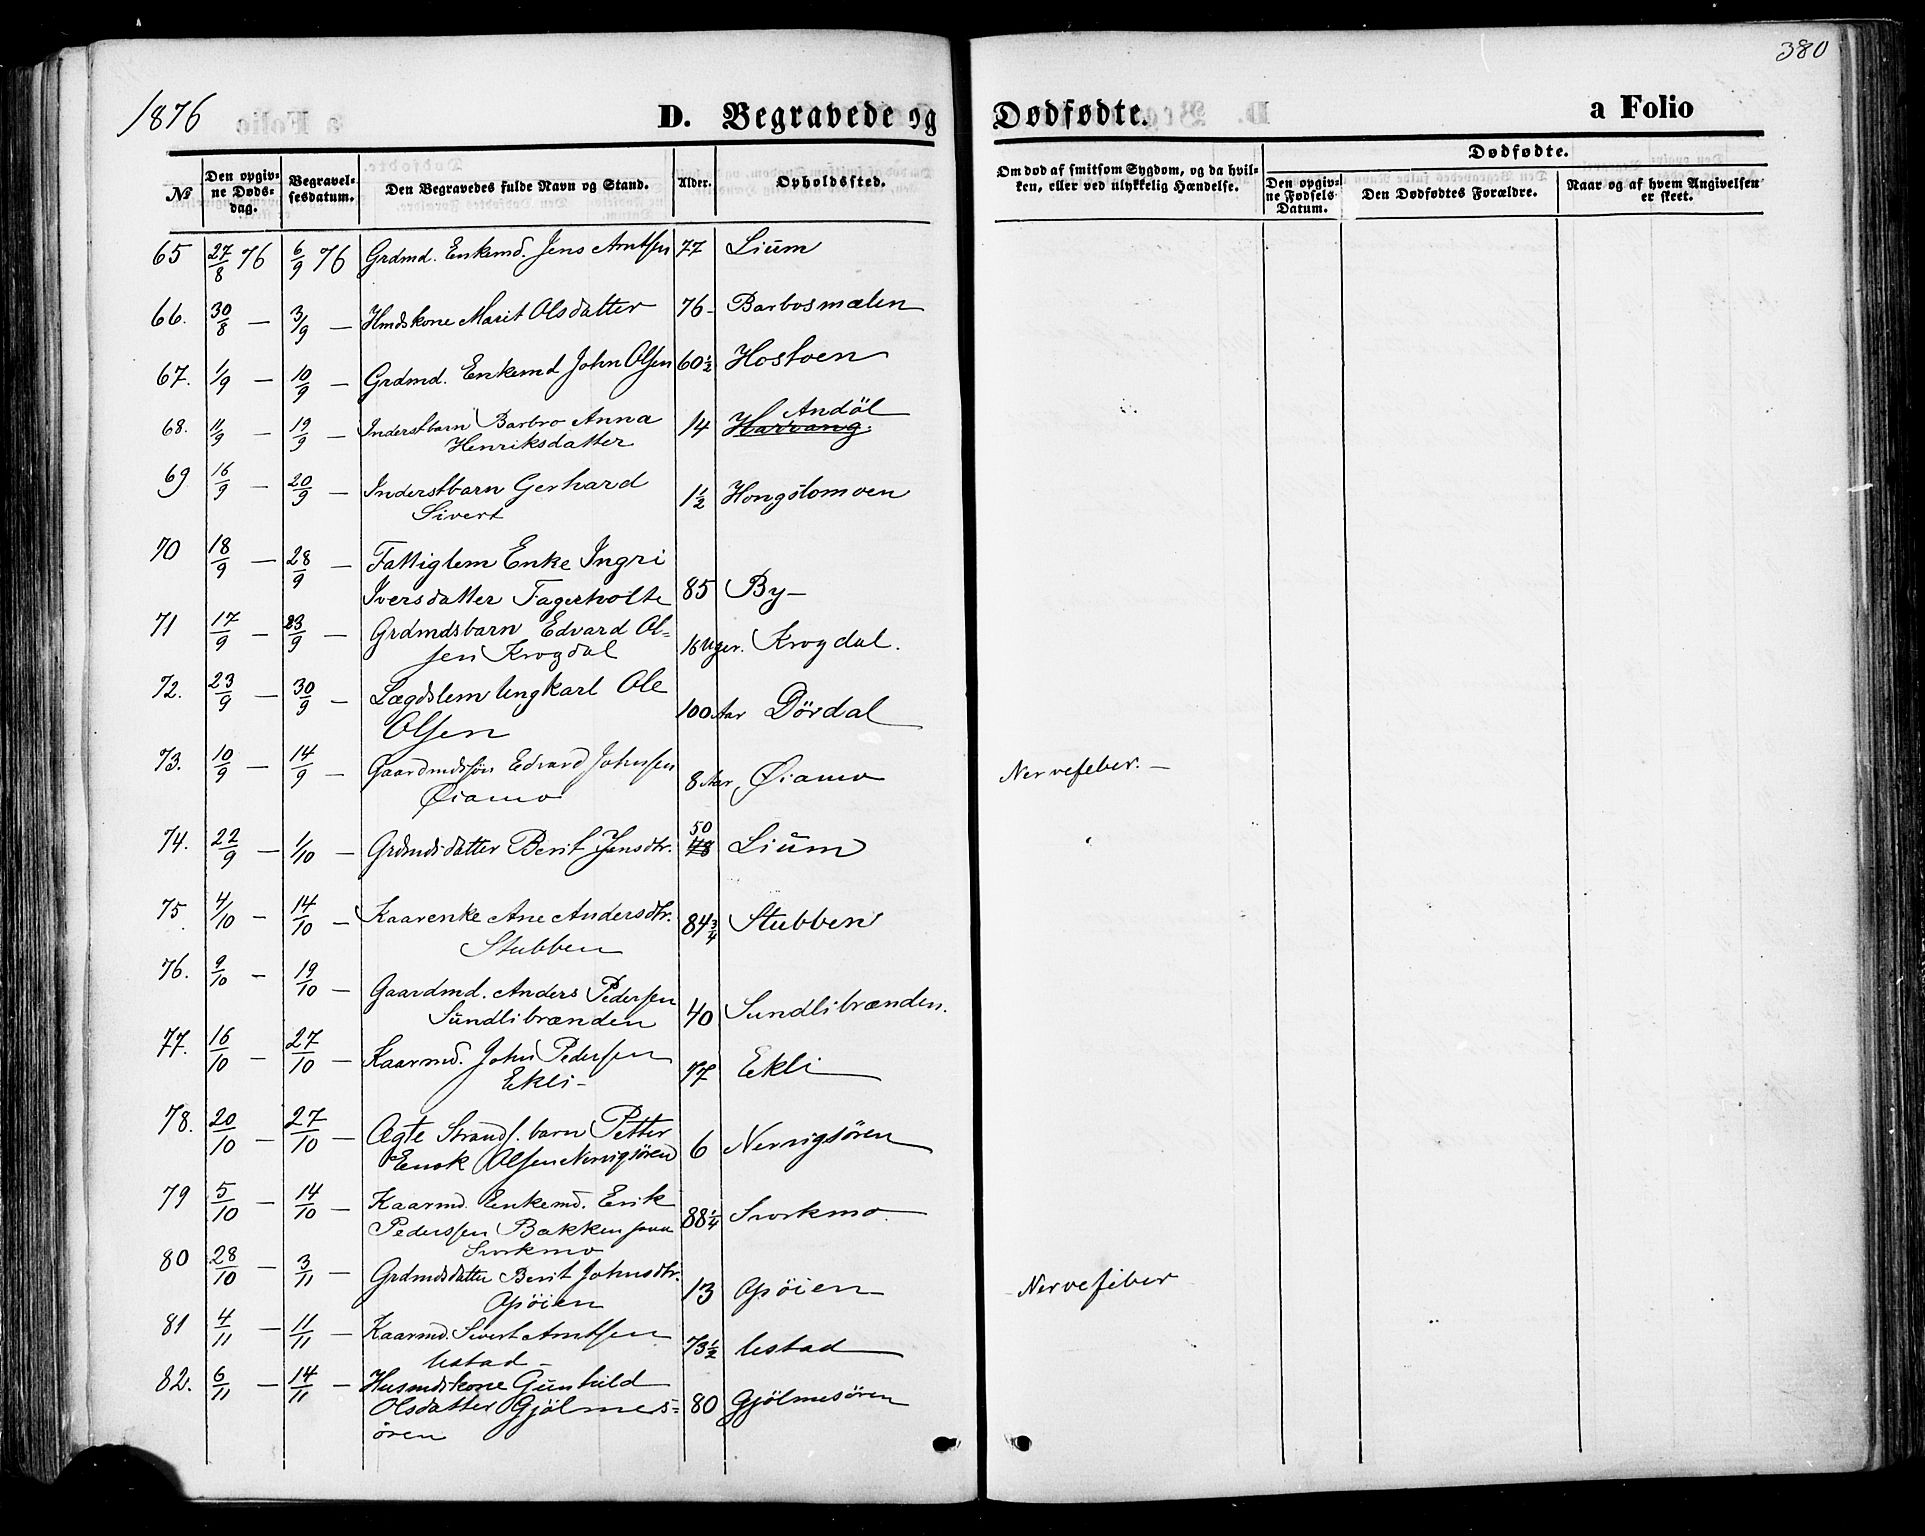 380
1876
D. Begravede og Dødfødte.
a Folio
№
Den opgiv-
ne Døds-
dag.
Begravel-
sesdatum.
Den Begravedes fulde Navn og Stand.
Alder.
Opholdssted.
Om død af smitsom Sygdom, og da hvil-
ken, eller ved ulykkelig Hændelse.
Dødfødte.
Den opgiv-
ne Fødsels
Datum.
Den Dødfødtes Forældre.
Naar og af hvem Angivelsen
er skeet.
65 27/8 76 6/9 76 Grdmd. Enkemd. Jens Arntsen 77 Lium
66. 30/8 — 3/9 — Hmdskone Marit Olsdatter 76- Barbosmælen
67. 1/9 — 10/9 — Grdmd. Enkemd John Olsen 60½ Hostoen
Andöl
68. 11/9 — 19/9 — Inderstbarn Barbro Anna 14 Harvang.
Henriksdatter
69 16/9 — 20/9 — Inderstbarn Gerhard 1½ Hongslomoen
Sivert
70 18/9 — 28/9 — Fattiglem Enke Ingri
Iversdatter Fagerholte 85 By—
71 17/9 — 23/9 — Grdmdsbarn Edvard Ol-
sen Krogdal 16 Uger. Krogdal.
72. 23/9 — 30/9 — Lægdslem Ungkarl Ole
Olsen 100 Aar Dördal
73. 10/9 — 14/9 — Gaardmdssön Edvard Johnsen 8 Aar Øiamo Nervefeber.—
Øiamo
50
74. 22/9 — 1/10 — Grdmdsdatter Berit Jensdtr. 48 Lium
75. 4/10 - 14/10 — Kaarenke Ane Andersdtr. 84¾ Stubben
Stubben
76. 9/10 — 19/10 — Gaardmd. Anders Pedersen 40 Sundlibrænden.
Sundlibrænden
77. 16/10 — 27/10 — Kaarmd. John Pedersen 77 Ekli
Ekli-
78. 20/10 — 27/10 — Ægte Strands. barn Petter 6 Nervigsören
Enok Olsen Nervigsören
79 5/10 — 14/10 — Kaarmd. Enkemd. Erik 88¼ Svorkmo
Pederssen Bakken paa
Svorkmo
80 28/10 — 3/11 — Grdmdsdatter Berit Johnsdtr. 13 Opöien Nervefeber
Opöien
81 4/11 — 11/11 — Kaarmd. Sivert Arntsen 73½ Ustad
Ustad—
82. 6/11 — 14/11 — Husmdskone Gunhild
Olsdatter Gjölmes- 80 Gjölmesören
ören